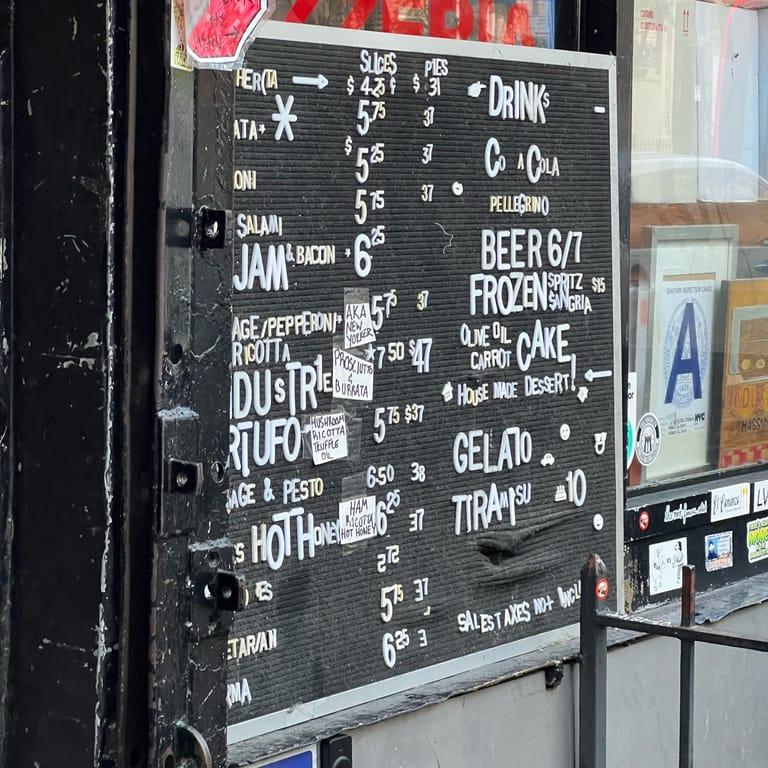 ZZERIA
SLICES PIES
HERITA $ 4.25 $ 31
ATA* 5.75 37
ONI $ 5.25 37
SALAMI 5.75 37
JAM & BACON * 6.25
AGE/PEPPERONI* 5.75 37
RICOTTA
AKA
NEW
YORKER
DUSTRIE *7.50 $47
PROSCIUTTO
&
BURRATA
RTUFO 5.75 $37
MUSHROOM
RICOTTA
TRUFFLE
OIL
AGE & PESTO 6.50 38
S HOT HONEY 6.25 37
HAM
RICOTTA
HOT HONEY
2.75
ES 5.75 37
ETARIAN 6.25 3
NA
DRINKS
CO A COLA
PELLEGRINO
BEER 6/7
FROZEN SPRITZ SANGRIA $15
OLIVE OIL
CARROT CAKE!
HOUSE MADE DESSERT!
GELATO
TIRAMISU 10
SALES TAXES NOT INCL
SANITARY INSPECTION GRADE
A
NYC